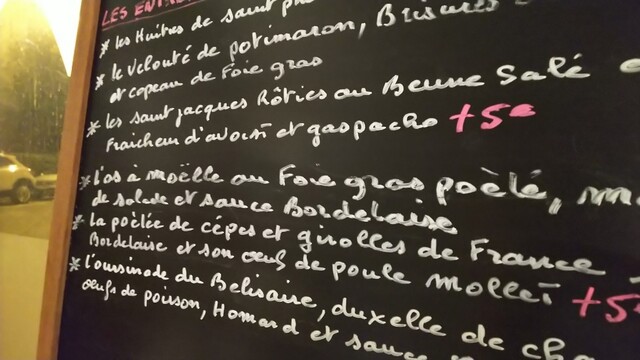 LES ENTRÉ
* les Huîtres de saint
* le Velouté de potimaron, Brisures
et copeau de Foie gras
* les saint jacques Rôties au Beurre Salé
Fraicheur d'avocat et gaspacho +5€
* l'os à moëlle au Foie gras poèlé,
de salade et sauce Bordelaise
* la poèlée de cépes et girolles de France
Bordelaise et son œuf de poule Mollet +5€
* l'oursinade du Belisaire, duxelle de
œufs de poisson, Homard et sauce